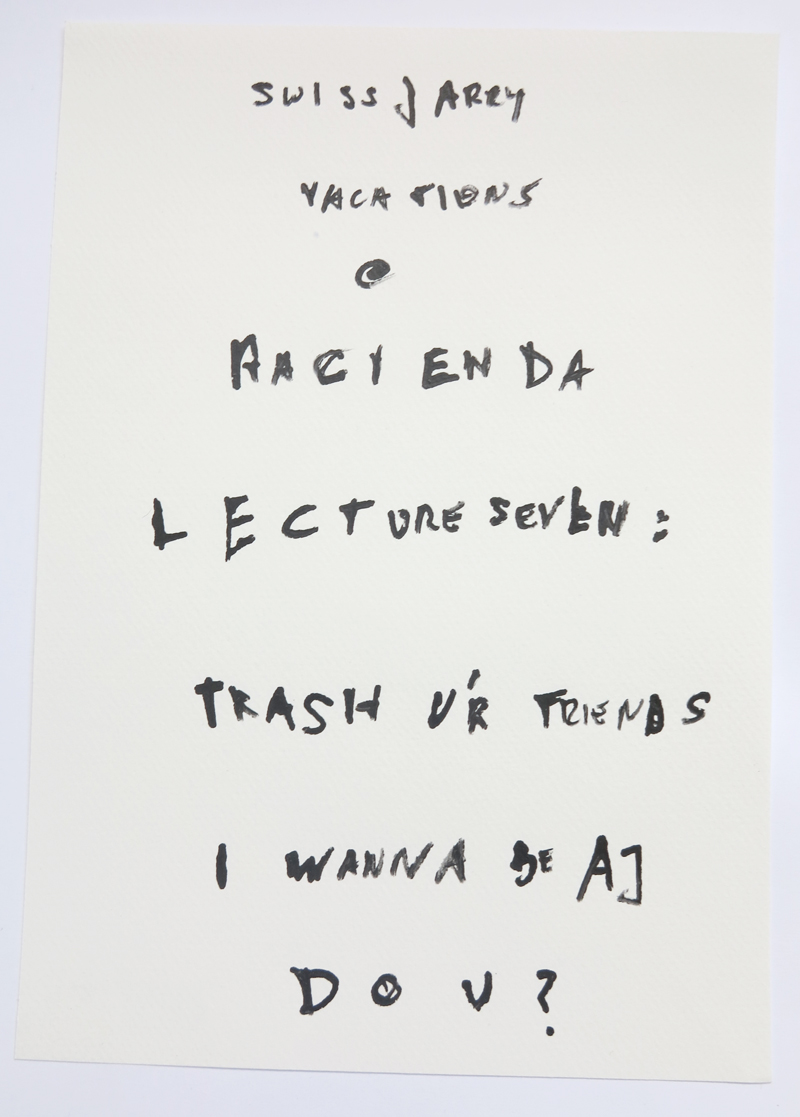 SWISS JARRY
VACATIONS
@
HACIENDA
LECTURE SEVEN:
TRASH U'R FRIENDS
I WANNA BE AJ
DO U?